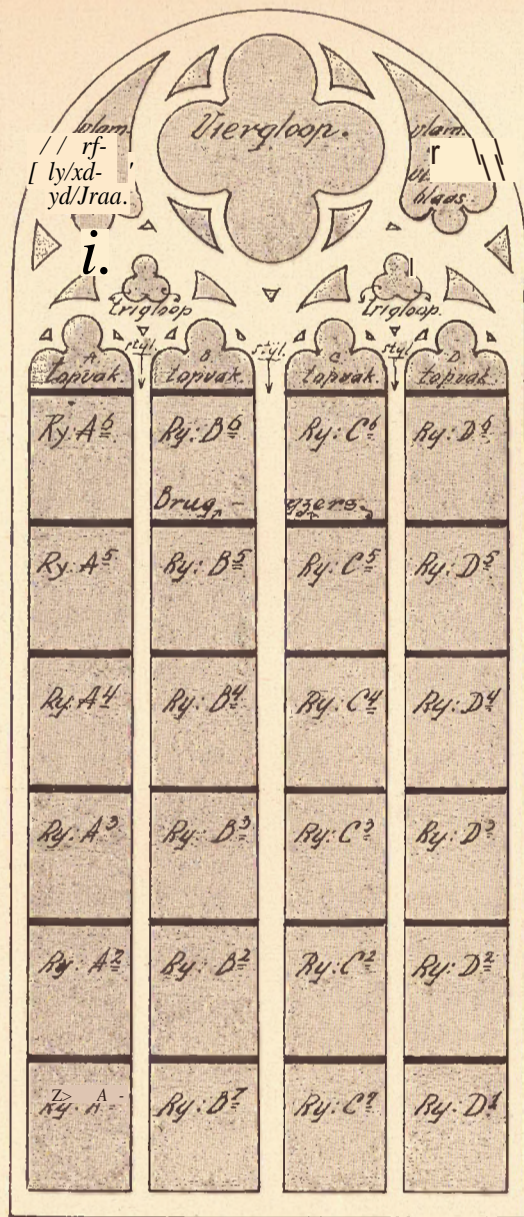 Viergloop.
vlam
vlam
blaas
trigloop
trigloop.
A B C D
styl. styl. styl.
topvak. topvak. topvak. topvak.
Ry: A 6 Ry: B 6 Ry: C 6 Ry: D 6
Brug - gzers
Ry: A 5 Ry: B 5 Ry: C 5 Ry: D 5
Ry: A 4 Ry: B 4 Ry: C 4 Ry: D 4
Ry: A 3 Ry: B 3 Ry: C 3 Ry: D 3
Ry: A 2 Ry: B 2 Ry: C 2 Ry: D 2
Ry: B 1 Ry: C 1 Ry: D 1